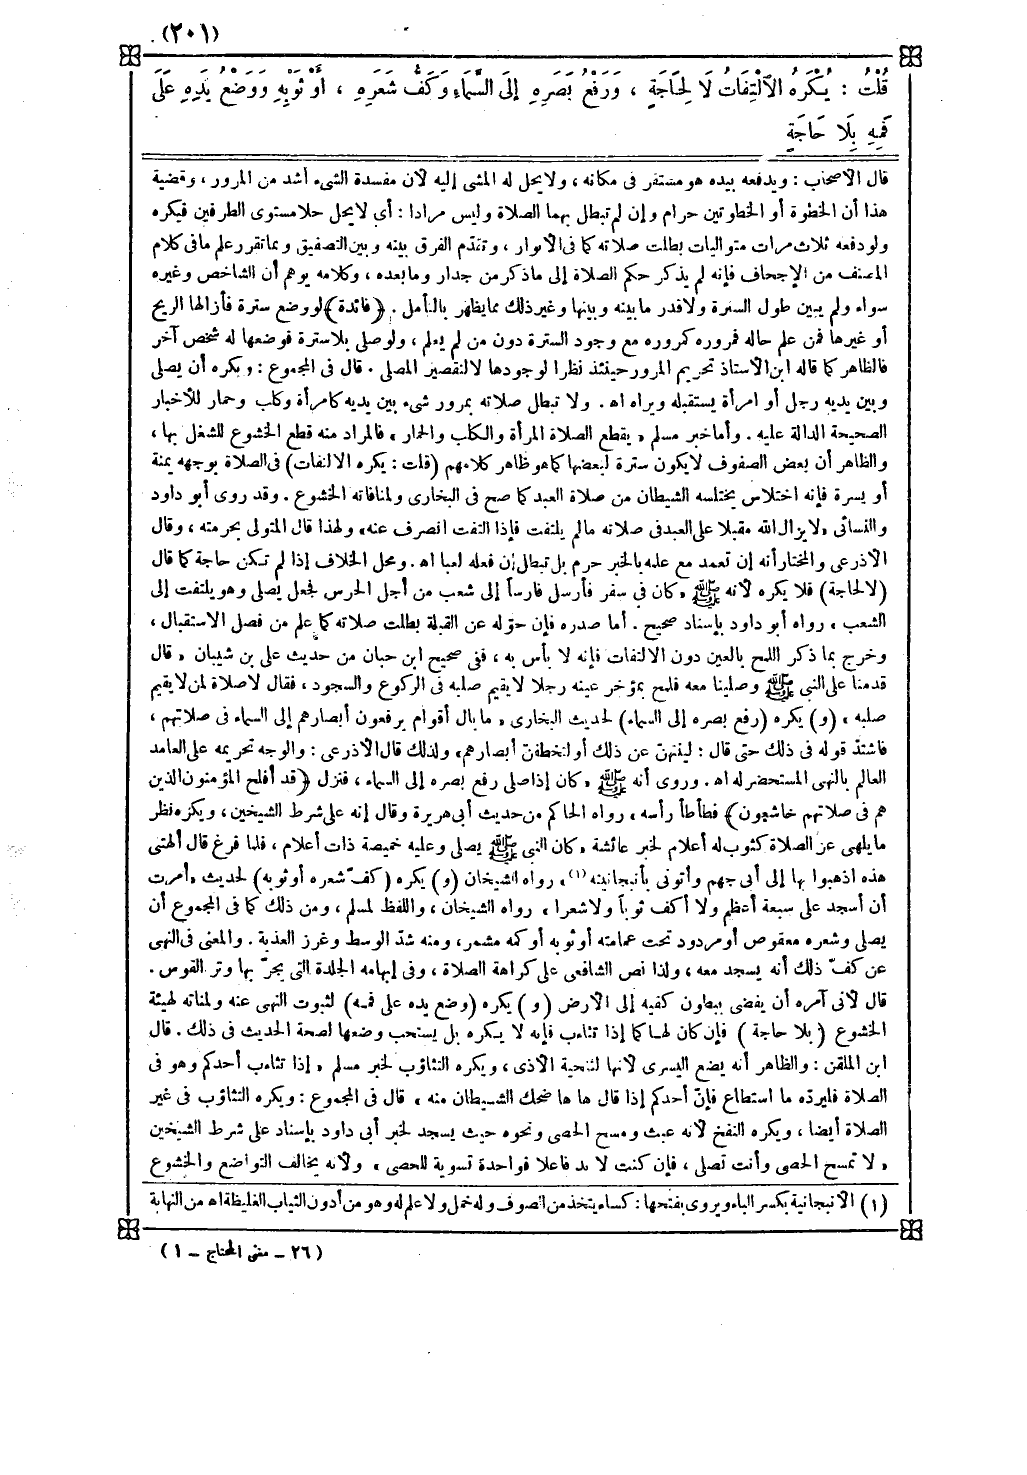 (٢٠١)
قُلْتُ : يُكْرَهُ الِالْتِفَاتُ لَا لِحَاجَةٍ ، وَرَفْعُ بَصَرِهِ إِلَى السَّمَاءِ وَكَفُّ شَعَرِهِ ، أَوْ ثَوْبِهِ وَوَضْعُ يَدِهِ عَلَى
فَمِهِ بِلَا حَاجَةٍ
قال الأصحاب : ويدفعه بيده وهو مستقر فى مكانه ، ولايحل له المشى إليه لأن مفسدة المشى أشد من المرور ، وقضية
هذا أن الخطوة أو الخطوتين حرام وإن لم تبطل بهما الصلاة وليس مرادا : أى لايحل حلا مستوى الطرفين فيكره
ولو دفعه ثلاث مرات متواليات بطلت صلاته كما فى الأنوار ، وتقدّم الفرق بينه وبين التصفيق وبما تقرر علم مافى كلام
المصنف من الإجحاف فإنه لم يذكر حكم الصلاة إلى ماذكر من جدار ومابعده ، وكلامه يوهم أن الشاخص وغيره
سواء ولم يبين طول السترة ولاقدر مابينه وبينها وغير ذلك مما يظهر بالتأمل . (فائدة) لو وضع سترة فأزالها الريح
أو غيرها فمن علم حاله فمروره كمروره مع وجود السترة دون من لم يعلم ، ولو صلى بلاسترة فوضعها له شخص آخر
فالظاهر كما قاله ابن الأستاذ تحريم المرور حينئذ نظرا لوجودها لا لتقصير المصلى . قال فى المجموع : ويكره أن يصلى
وبين يديه رجل أو امرأة يستقبله ويراه اه . ولا تبطل صلاته بمرور شىء بين يديه كامرأة وكلب وحمار للأخبار
الصحيحة الدالة عليه . وأما خبر مسلم « يقطع الصلاة المرأة والكلب والحمار » فالمراد منه قطع الخشوع للشغل بها ،
والظاهر أن بعض الصفوف لايكون سترة لبعضها كما هو ظاهر كلامهم (قلت : يكره الالتفات) فى الصلاة بوجهه يمنة
أو يسرة فإنه اختلاس يختلسه الشيطان من صلاة العبد كما صح فى البخارى ولمنافاته الخشوع . وقد روى أبو داود
والنسائى «لايزال الله مقبلا على العبد فى صلاته مالم يلتفت فإذا التفت انصرف عنه» ولهذا قال المتولى بحرمته ، وقال
الأذرعى والمختار أنه إن تعمد مع علمه بالخبر حرم بل تبطل إن فعله لعبا اه . ومحل الخلاف إذا لم تكن حاجة كما قال
(لالحاجة) فلا يكره لأنه ﷺ «كان فى سفر فأرسل فارساً إلى شعب من أجل الحرس فجعل يصلى وهو يلتفت إلى
الشعب » رواه أبو داود بإسناد صحيح . أما صدره فإن حوّله عن القبلة بطلت صلاته كما علم من فصل الاستقبال ،
وخرج بما ذكر اللمح بالعين دون الالتفات فإنه لا بأس به ، ففى صحيح ابن حبان من حديث على بن شيبان « قال
قدمنا على النبى ﷺ وصلينا معه فلمح بمؤخر عينه رجلا لا يقيم صلبه فى الركوع والسجود ، فقال لاصلاة لمن لايقيم
صلبه » (و) يكره (رفع بصره إلى السماء) لحديث البخارى « مابال أقوام يرفعون أبصارهم إلى السماء فى صلاتهم ،
فاشتدّ قوله فى ذلك حتى قال : لينتهنّ عن ذلك أو لتخطفنّ أبصارهم» ولذلك قال الأذرعى : والوجه تحريمه على العامد
العالم بالنهى المستحضر له اه . وروى أنه ﷺ « كان إذا صلى رفع بصره إلى السماء ، فنزل (قد أفلح المؤمنون الذين
هم فى صلاتهم خاشعون) فطأطأ رأسه » رواه الحاكم من حديث أبى هريرة وقال إنه على شرط الشيخين ، ويكره نظر
مايلهى عن الصلاة كثوب له أعلام لخبر عائشة «كان النبى ﷺ يصلى وعليه خميصة ذات أعلام ، فلما فرغ قال ألهتنى
هذه اذهبوا بها إلى أبى جهم وأتونى بأنبجانيته (١)» رواه الشيخان (و) يكره (كفّ شعره أو ثوبه) لحديث «أمرت
أن أسجد على سبعة أعظم ولا أكف ثوباً ولاشعرا » رواه الشيخان ، واللفظ لمسلم ، ومن ذلك كما فى المجموع أن
يصلى وشعره معقوص أو مردود تحت عمامته أو ثوبه أو كمه مشمر ، ومنه شدّ الوسط وغرز العذبة . والمعنى فى النهى
عن كفّ ذلك أنه يسجد معه ، ولذا نص الشافعى على كراهة الصلاة ، وفى إبهامه الجلدة التى يجرّ بها وتر القوس .
قال لأنى آمره أن يفضى ببطون كفيه إلى الأرض (و) يكره (وضع يده على فمه) لثبوت النهى عنه ولمنافاته لهيئة
الخشوع (بلا حاجة) فإن كان لها كما إذا تثاءب فإنه لا يكره بل يستحب وضعها لصحة الحديث فى ذلك . قال
ابن الملقن : والظاهر أنه يضع اليسرى لأنها لتنحية الأذى ، ويكره التثاؤب لخبر مسلم « إذا تثاءب أحدكم وهو فى
الصلاة فليردّه ما استطاع فإنّ أحدكم إذا قال ها ها ضحك الشيطان منه » قال فى المجموع : ويكره التثاؤب فى غير
الصلاة أيضا ، ويكره النفخ لأنه عبث ومسح الحصى ونحوه حيث يسجد لخبر أبى داود بإسناد على شرط الشيخين
« لا تمسح الحصى وأنت تصلى ، فإن كنت لا بد فاعلا فواحدة تسوية للحصى » ولأنه يخالف التواضع والخشوع
(١) الأنبجانية بكسر الباء ويروى بفتحها : كساء يتخذ من الصوف وله خمل ولا علم له وهو من أدون الثياب الغليظة اه من النهاية
(٢٦ - مغنى المحتاج - ١)